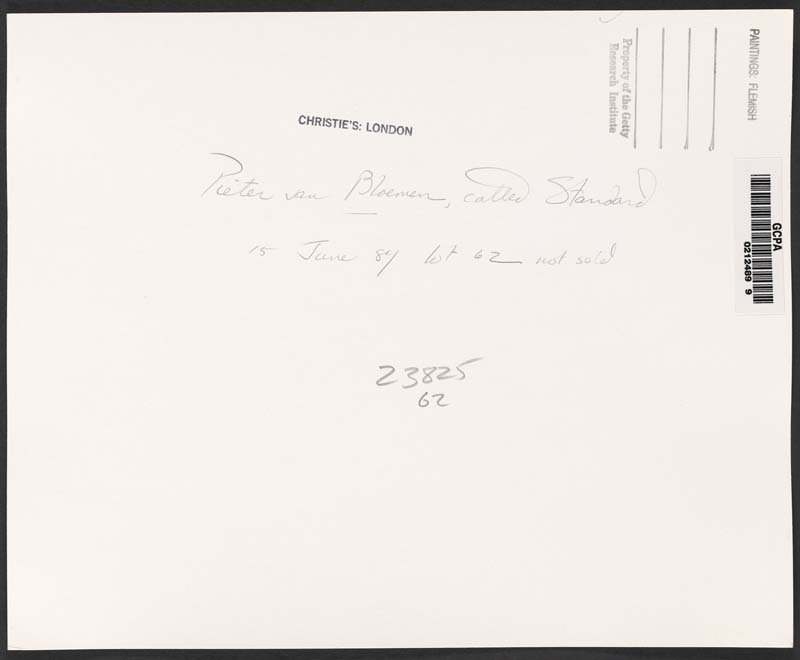 PAINTINGS: FLEMISH
Property of the Getty
Research Institute
CHRISTIE'S: LONDON
Pieter van Bloemen, called Standard
15 June 84 lot 62 not sold
GCPA
0212489 9
23825
62